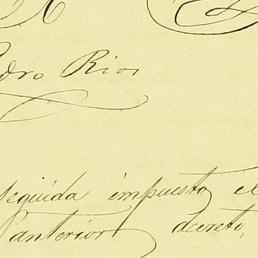 Pedro Rios
seguida impuesto el
anterior decreto,